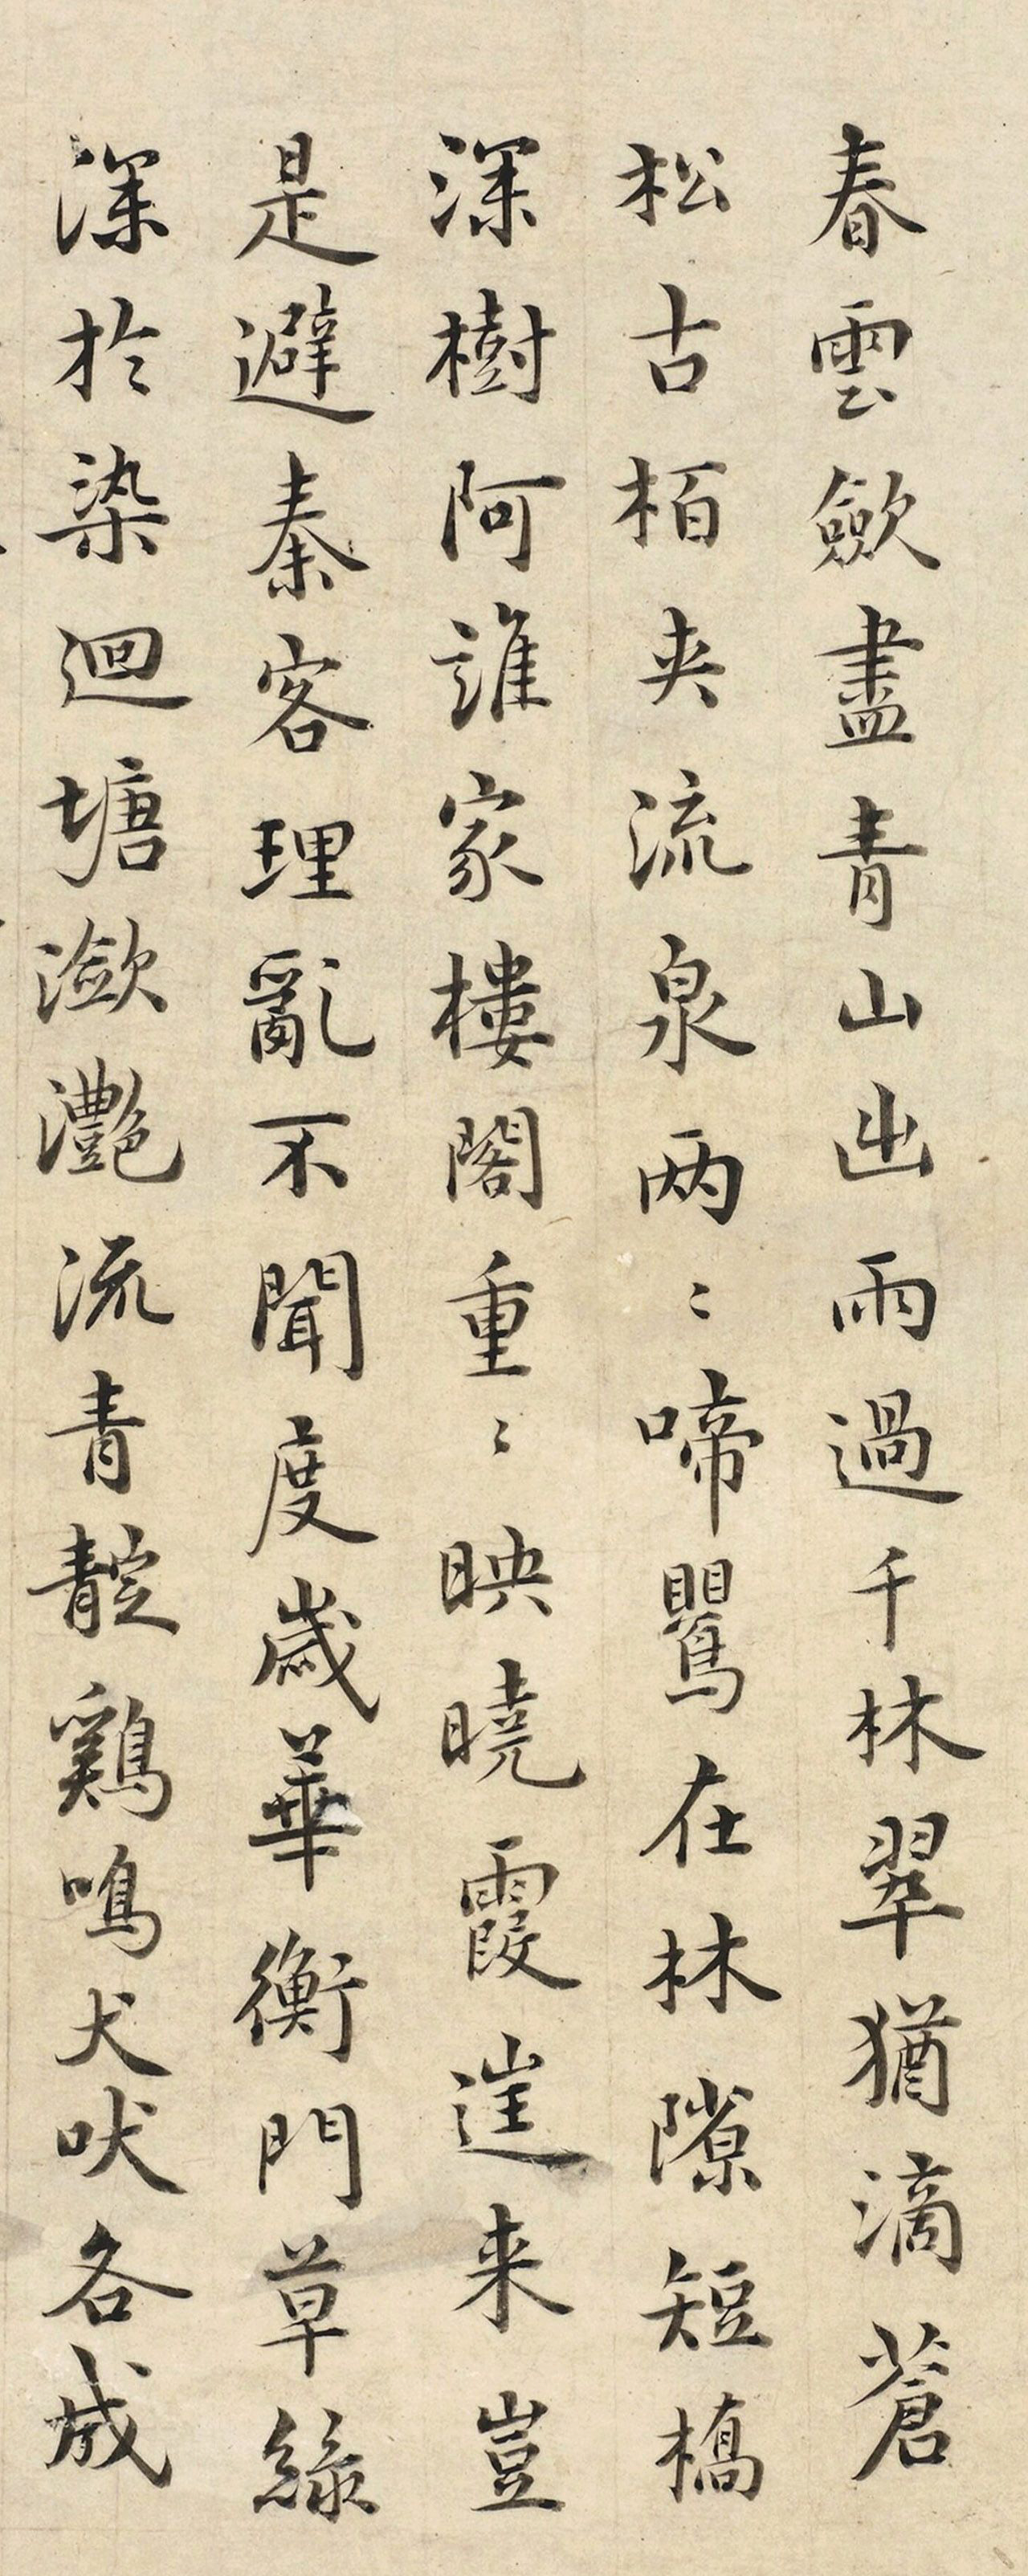 春雲歛盡青山出雨過千林翠猶滴蒼
松古栢夾流泉两〻啼鸎在林隙短橋
深樹阿誰家樓閣重〻映曉霞逰来豈
是避秦客理亂不聞度歳華衡門草綠
深於染迴塘潋灔流青靛鷄鳴犬吠各成